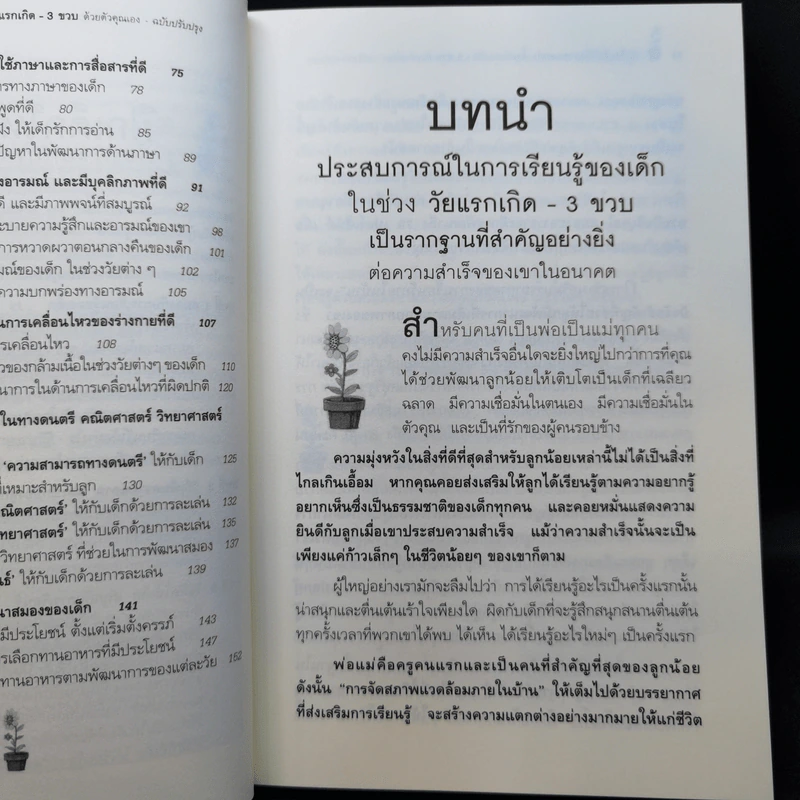 แรกเกิด - 3 ขวบ ด้วยตัวคุณเอง · ฉบับปรับปรุง
ใช้ภาษาและการสื่อสารที่ดี 75
ารทางภาษาของเด็ก 78
พูดที่ดี 80
ฝัง ให้เด็กรักการอ่าน 85
ปัญหาในพัฒนาการด้านภาษา 89
งอารมณ์ และมีบุคลิกภาพที่ดี 91
ดี และมีภาพพจน์ที่สมบูรณ์ 92
ะบายความรู้สึกและอารมณ์ของเขา 98
การหวาดผวาตอนกลางคืนของเด็ก 101
มณ์ของเด็ก ในช่วงวัยต่าง ๆ 102
ความบกพร่องทางอารมณ์ 105
นการเคลื่อนไหวของร่างกายที่ดี 107
รเคลื่อนไหว 108
วของกล้ามเนื้อในช่วงวัยต่างๆ ของเด็ก 110
นาการในด้านการเคลื่อนไหวที่ผิดปกติ 120
ในทางดนตรี คณิตศาสตร์ วิทยาศาสตร์
'ความสามารถทางดนตรี' ให้กับเด็ก 125
ที่เหมาะสำหรับลูก 130
ณิตศาสตร์' ให้กับเด็กด้วยการละเล่น 132
ทยาศาสตร์' ให้กับเด็กด้วยการละเล่น 135
วิทยาศาสตร์ ที่ช่วยในการพัฒนาสมอง 137
ให้กับเด็กด้วยการละเล่น 139
นาสมองของเด็ก 141
มีประโยชน์ ตั้งแต่เริ่มตั้งครรภ์ 143
ารเลือกทานอาหารที่มีประโยชน์ 147
ทานอาหารตามพัฒนาการของแต่ละวัย 162
บทนำ
ประสบการณ์ในการเรียนรู้ของเด็ก
ในช่วง วัยแรกเกิด - 3 ขวบ
เป็นรากฐานที่สำคัญอย่างยิ่ง
ต่อความสำเร็จของเขาในอนาคต
สำหรับคนที่เป็นพ่อเป็นแม่ทุกคน
คงไม่มีความสำเร็จอื่นใดจะยิ่งใหญ่ไปกว่าการที่คุณ
ได้ช่วยพัฒนาลูกน้อยให้เติบโตเป็นเด็กที่เฉลียว
ฉลาด มีความเชื่อมั่นในตนเอง มีความเชื่อมั่นใน
ตัวคุณ และเป็นที่รักของผู้คนรอบข้าง
ความมุ่งหวังในสิ่งที่ดีที่สุดสำหรับลูกน้อยเหล่านี้ไม่ได้เป็นสิ่งที่
ไกลเกินเอื้อม หากคุณคอยส่งเสริมให้ลูกได้เรียนรู้ตามความอยากรู้
อยากเห็นซึ่งเป็นธรรมชาติของเด็กทุกคน และคอยหมั่นแสดงความ
ยินดีกับลูกเมื่อเขาประสบความสำเร็จ แม้ว่าความสำเร็จนั้นจะเป็น
เพียงแค่ก้าวเล็กๆ ในชีวิตน้อยๆ ของเขาก็ตาม
ผู้ใหญ่อย่างเรามักจะลืมไปว่า การได้เรียนรู้อะไรเป็นครั้งแรกนั้น
น่าสนุกและตื่นเต้นเร้าใจเพียงใด ผิดกับเด็กที่จะรู้สึกสนุกสนานตื่นเต้น
ทุกครั้งเวลาที่พวกเขาได้พบ ได้เห็น ได้เรียนรู้อะไรใหม่ๆ เป็นครั้งแรก
พ่อแม่คือครูคนแรกและเป็นคนที่สำคัญที่สุดของลูกน้อย
ดังนั้น "การจัดสภาพแวดล้อมภายในบ้าน" ให้เต็มไปด้วยบรรยากาศ
ที่ส่งเสริมการเรียนรู้ จะสร้างความแตกต่างอย่างมากมายให้แก่ชีวิต